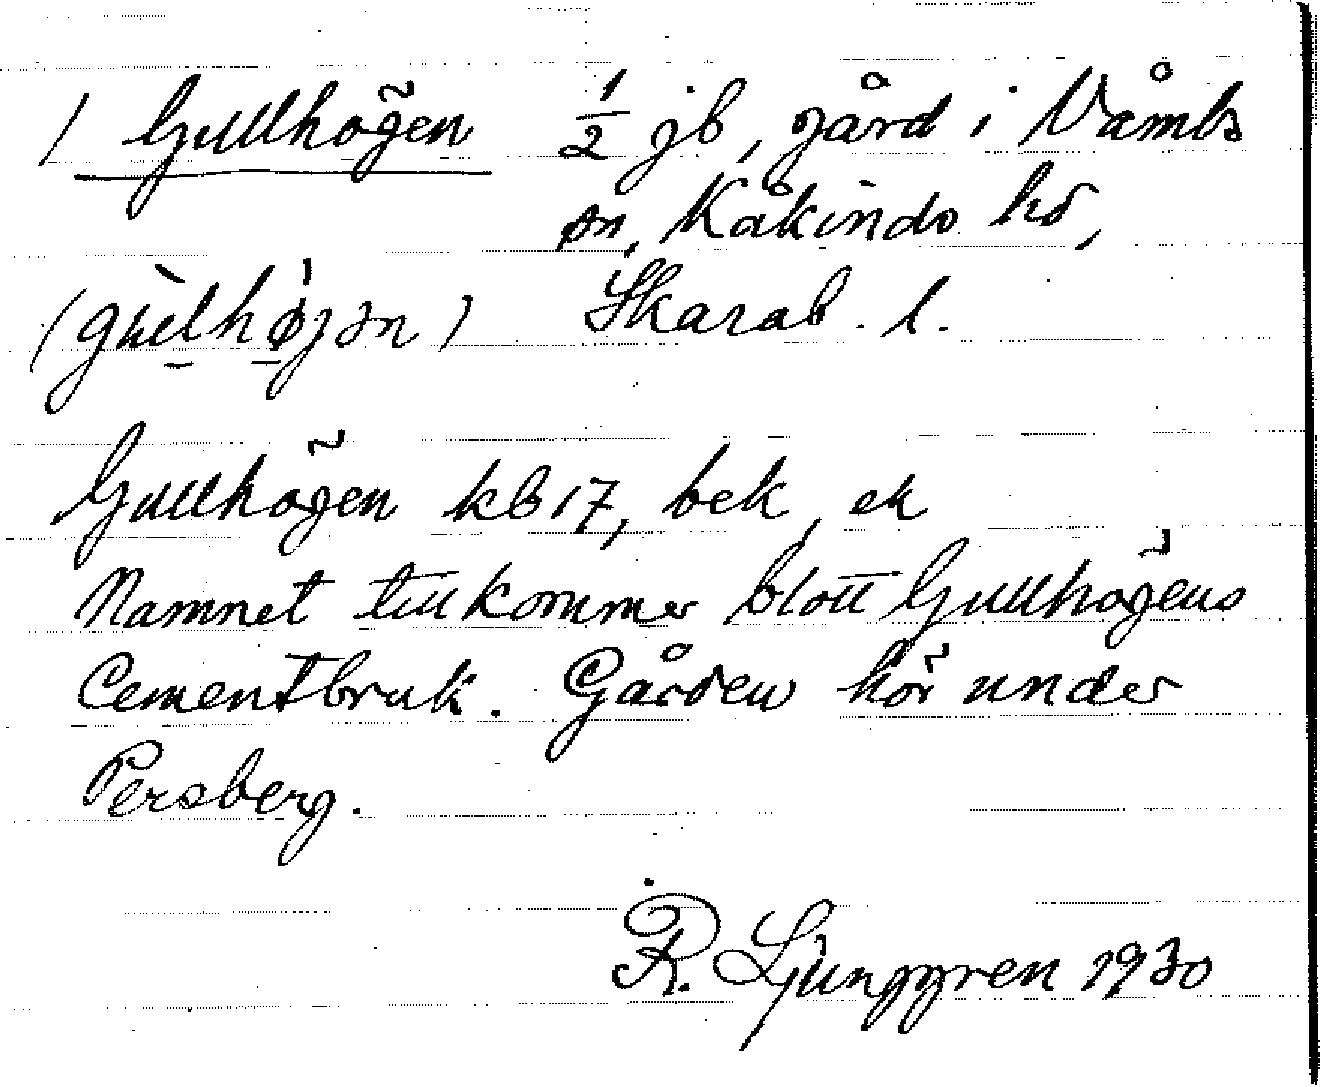 / Gullhögen ½ jb, gård i Våmbs
sn, Kåkinds hd,
(gùlhø̀jən) Skarab. l.
Gullhögen kb 17, bek, ek
Namnet tillkommer blott Gullhögens
Cementbruk. Gården hör under
Persberg.
R. Ljunggren 1930